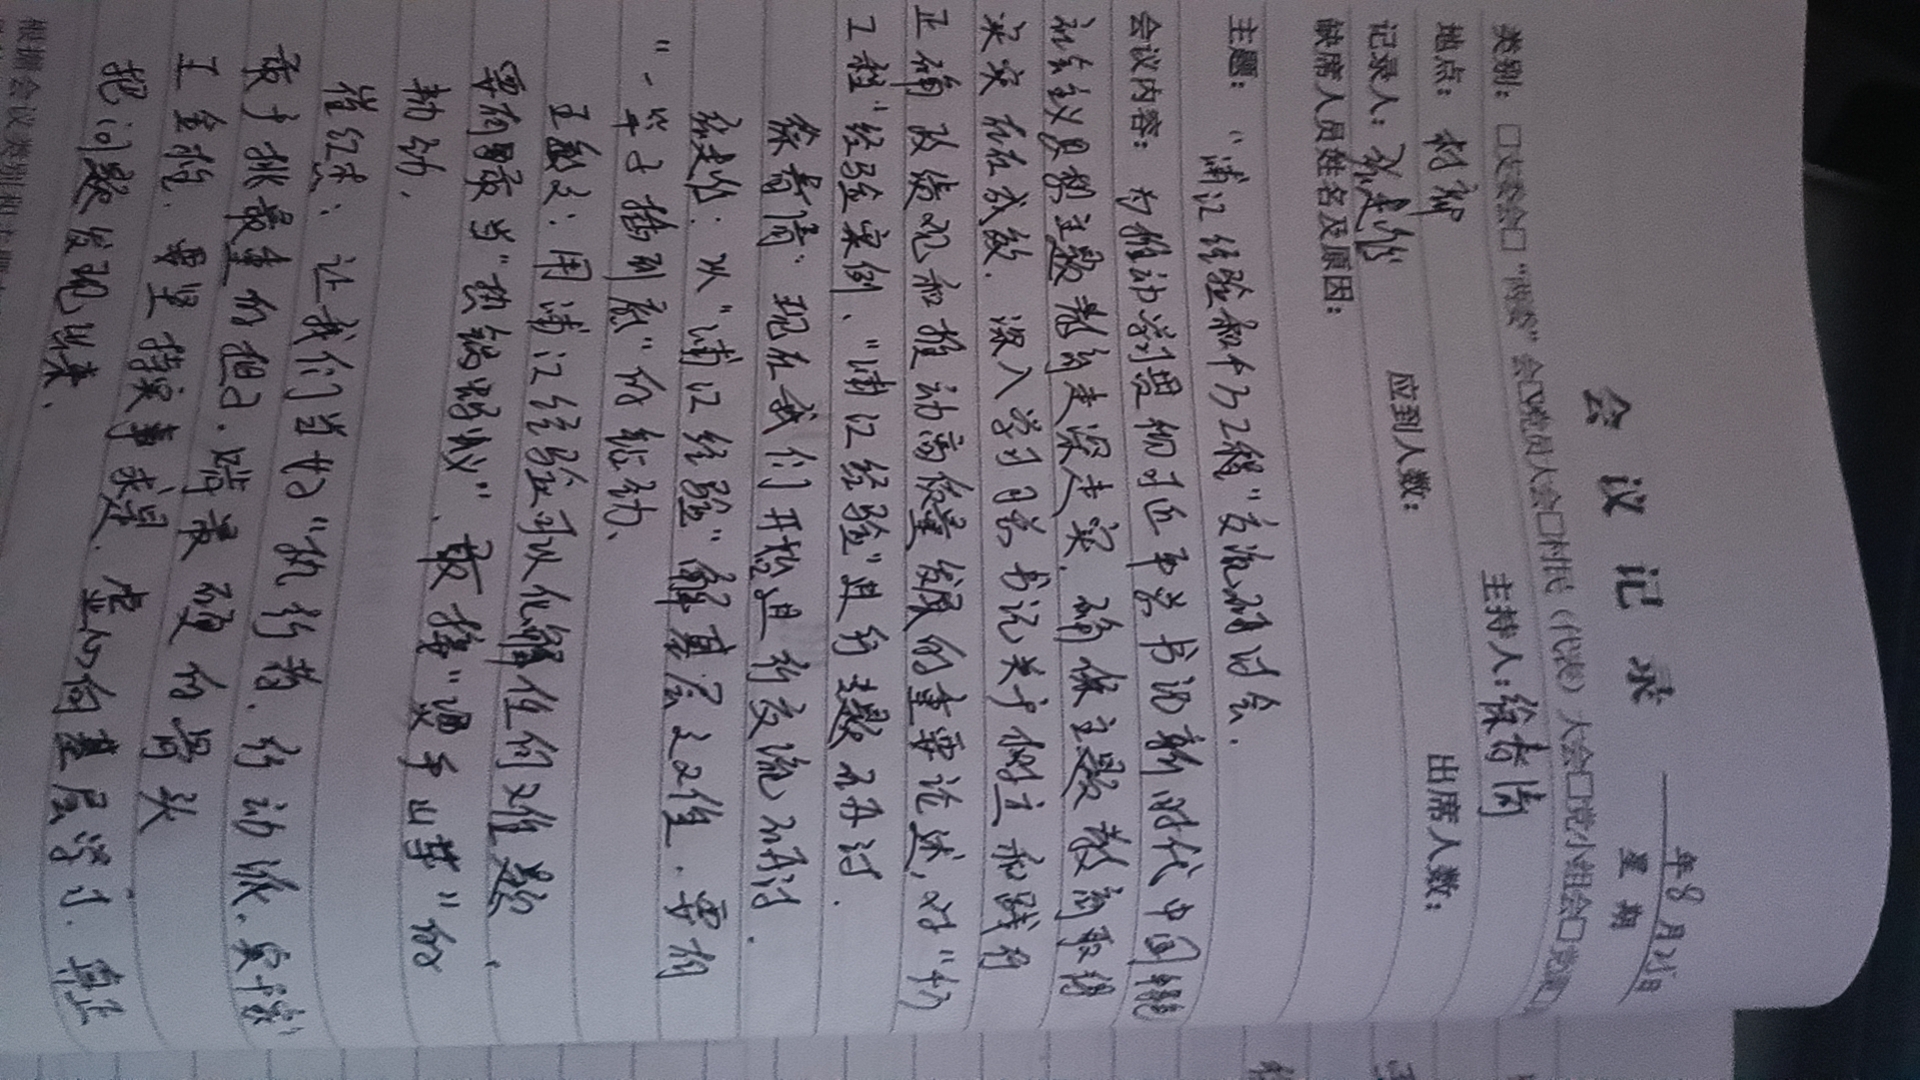 会议记录
年8月25日
星期
类别：□支委会□“两委”会☑党员大会□村民（代表）大会□党小组会□党课□
地点：村部
主持人：徐青倩
记录人：
出席人数：
应到人数：
缺席人员姓名及原因：
主题：“浦江经验和千万工程”交流研讨会.
会议内容：为推动学习贯彻习近平总书记新时代中国特色
社会主义思想主题教育走深走实，确保主题教育取得
实实在在成效，深入学习习总书记关于树立和践行
正确政绩观和推动高质量发展的重要论述，对“千万
工程”经验案例、“浦江经验”进行主题研讨.
徐青倩：现在我们开始进行交流研讨.
从“浦江经验”解基层之工作，要有
“一竿子插到底”的韧劲、
用浦江经验可以化解任何难题，
要有勇当“热锅蚂蚁”，敢接“烫手山芋”的
勐劲，
让我们当好“执行者、行动派、实干家”
敢于挑最重的担子，啃最硬的骨头
王金："要坚持实事求是，虚心向基层学习，真正
把问题发现出来.
根据会议类别和主题